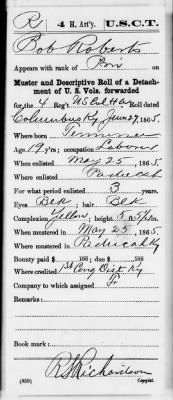 R | 4 H. Art'y. | U.S.C.T.
Bob Roberts
Appears with rank of Pvt on
Muster and Descriptive Roll of a Detach-
ment of U. S. Vols. forwarded
for the 4 Reg't US Col HA Roll dated
Columbus Ky June 27, 1865.
Where born
Age 19 y'rs; occupation Laborer
When enlisted May 25, 1865.
Where enlisted Paducah
For what period enlisted 3 years.
Eyes Blk; hair Blk
Complexion Yellow; height 5 ft. 5½ in.
When mustered in May 25, 1865.
Where mustered in Paducah Ky
Bounty paid $ 100; due $ 100
Where credited 1st Cong Dist Ky
Company to which assigned
Remarks:
Book mark:
R S Richardson
(339) Copyist.